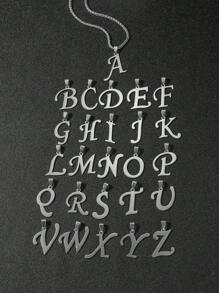 A
BCDEF
GHIJK
LMNOP
QRSTU
VWXYZ